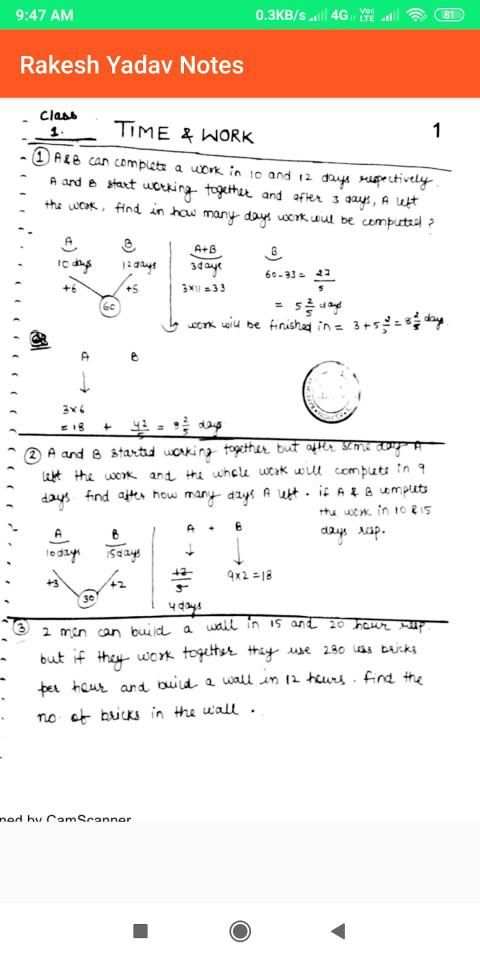 9:47 AM 0.3KB/s 4G Vo) LTE 81
Rakesh Yadav Notes
Class
1.
TIME & WORK
1
① A&B can complete a work in 10 and 12 days respectively.
A and B start working together and after 3 days, A left
the work, find in how many days work will be completed?
A B A+B B
10 days 12 days 3 days 60-33 = 27/5
+6 +5 3×11=33
60 = 5 2/5 days
work will be finished in = 3+5 2/5 = 8 2/5 days.
OR
A B
3×6
= 18 + 42/5 = 8 2/5 days
② A and B started working together but after some day A
left the work and the whole work will complete in 9
days find after how many days A left. if A & B completes
the work in 10 & 15
days resp.
A B A + B
10 days 15 days
+3 +2 12/3 9×2=18
30
4 days
③ 2 men can build a wall in 15 and 20 hour resp.
but if they work together they use 280 less bricks
per hour and build a wall in 12 hours. Find the
no. of bricks in the wall.
ned by CamScanner